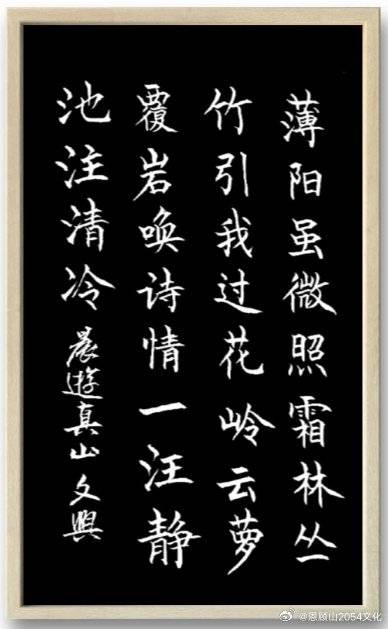 薄阳虽微照霜林丛
竹引我过花岭云萝
覆岩唤诗情一汪静
池注清冷 晨遊真山 文興
@恩顾山2054文化